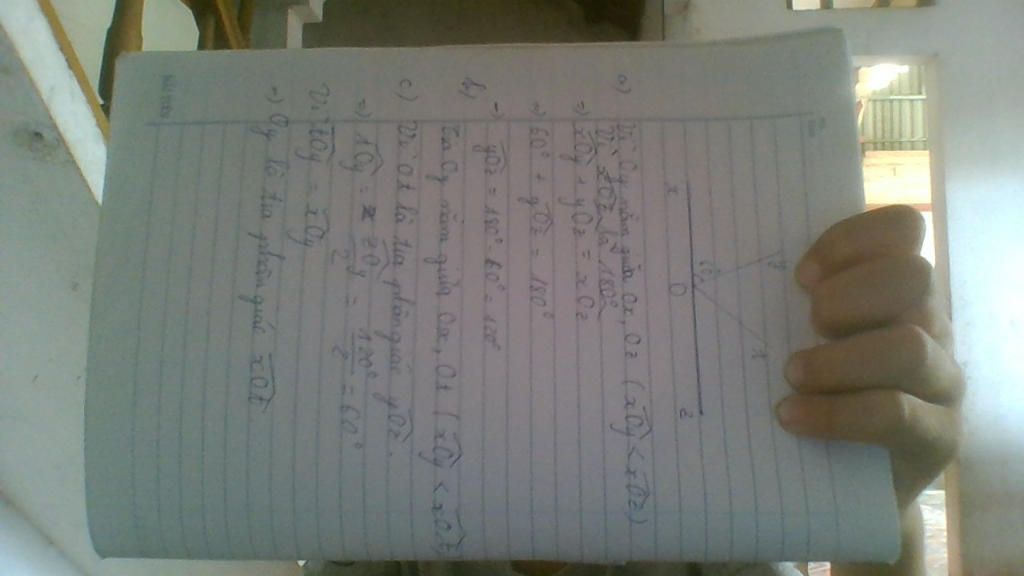 x O z
y t
60°
a) Vì Oy nằm giữa Ox, Oz (xOy < xOz)
Và xOz là 180°
=> xOy + yOz = xOz
=> 60° + yOz = 180°
=> yOz = 180° - 60° = 120°
b, Tia Oy nằm giữa Ox, Ot (xOy < xOt
c) Vì Ot là tia phân giác yOz.
=> tOy = zOy / 2 = 120° / 2 = 60°
Vì tOy = xOy
=> Oy là tia phân giác xOt.